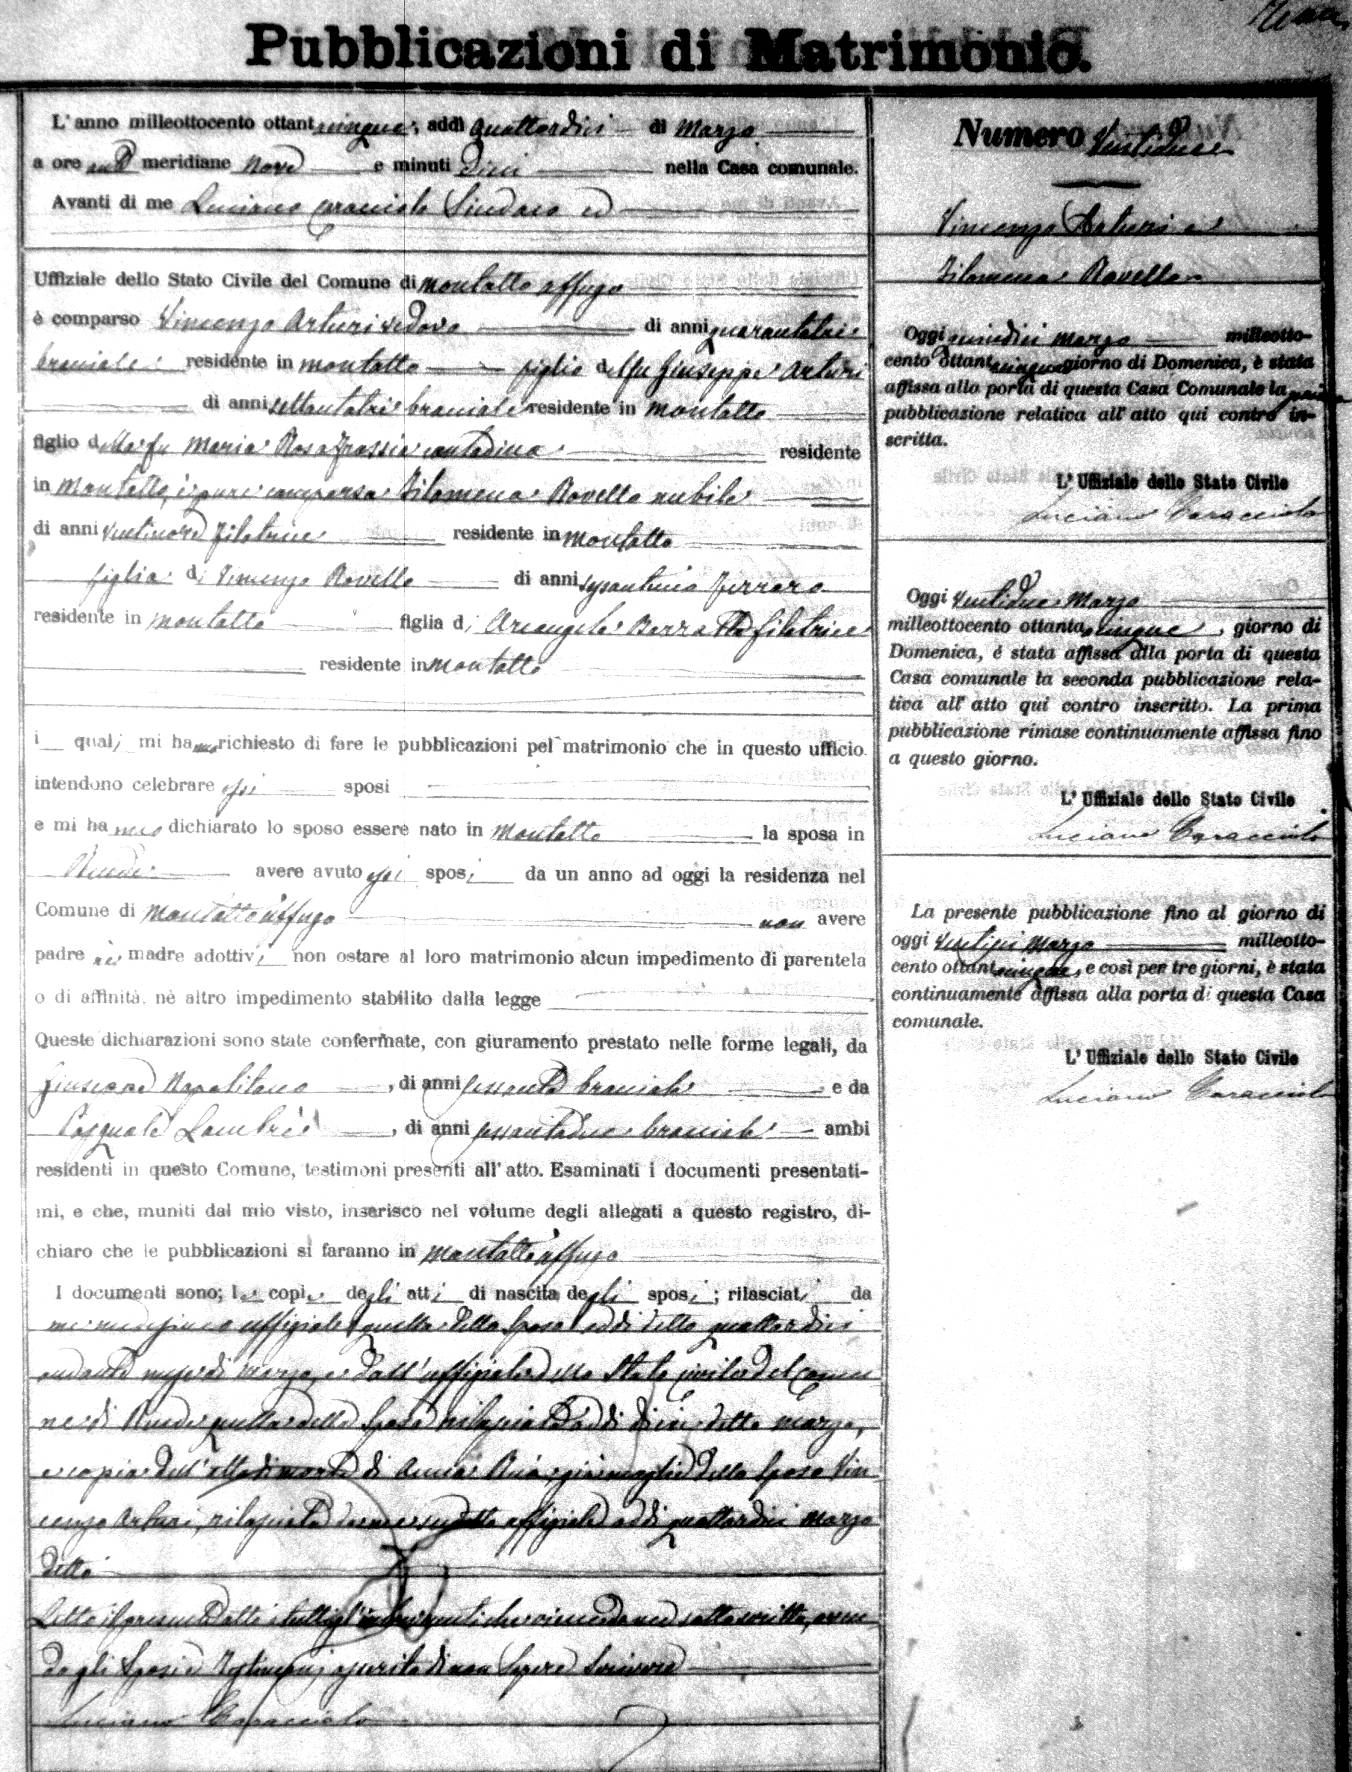 Pubblicazioni di Matrimonio.
L'anno milleottocento ottantacinque, addì quattordici di Marzo
a ore ant meridiane Nove e minuti Dieci nella Casa comunale.
Avanti di me Luciano Caracciolo Sindaco ed
Uffiziale dello Stato Civile del Comune di Montalto Uffugo
è comparso Vincenzo Arturi vedovo di anni quarantatrè
bracciale residente in Montalto figlio del fu Giuseppe Arturi
di anni settantatrè bracciale residente in Montalto
figlio della fu Maria Rosa contadina residente
in Montalto, è pure comparsa Filomena Rovella nubile
di anni ventinove filatrice residente in Montalto
figlia di Vincenzo Rovella di anni sessantuno
residente in Montalto figlia di Arcangela filatrice
residente in Montalto
i quali mi hanno richiesto di fare le pubblicazioni pel matrimonio che in questo ufficio
intendono celebrare essi sposi
e mi hanno dichiarato lo sposo essere nato in Montalto la sposa in
Rende avere avuto essi sposi da un anno ad oggi la residenza nel
Comune di Montalto Uffugo non avere
padre nè madre adottivi non ostare al loro matrimonio alcun impedimento di parentela
o di affinità, nè altro impedimento stabilito dalla legge
Queste dichiarazioni sono state confermate, con giuramento prestato nelle forme legali, da
Giuseppe Napolitano, di anni sessanta bracciale e da
Pasquale, di anni sessantadue bracciale ambi
residenti in questo Comune, testimoni presenti all'atto. Esaminati i documenti presentati-
mi, e che, muniti dal mio visto, inserisco nel volume degli allegati a questo registro, di-
chiaro che le pubblicazioni si faranno in Montalto Uffugo
I documenti sono; le copie degli atti di nascita degli sposi; rilasciati da
me medesimo uffiziale quella dello sposo addì detto quattordici
andante mese di Marzo, e dall'uffiziale dello Stato civile del Comu
ne di Rende quella della sposa rilasciata addì dieci detto Marzo,
e copia dell'atto di morte di Anna già moglie dello sposo Vin
cenzo Arturi, rilasciata da me suddetto uffiziale addì quattordici Marzo
detto
Letto il presente atto a tutti gl'intervenuti che viene da me sottoscritto, aven
do gli sposi e testimoni asserito di non sapere scrivere
Luciano Caracciolo
Numero Ventidue
Vincenzo Arturi e
Filomena Rovella
Oggi quindici Marzo milleotto-
cento ottantacinque giorno di Domenica, è stata
affissa alla porta di questa Casa Comunale la prima
pubblicazione relativa all'atto qui contro in-
scritta.
L'Uffiziale dello Stato Civile
Luciano Caracciolo
Oggi ventidue Marzo
milleottocento ottantacinque, giorno di
Domenica, è stata affissa alla porta di questa
Casa comunale la seconda pubblicazione rela-
tiva all'atto qui contro inscritto. La prima
pubblicazione rimase continuamente affissa fino
a questo giorno.
L'Uffiziale dello Stato Civile
Luciano Caracciolo
La presente pubblicazione fino al giorno di
oggi Marzo milleotto-
cento ottantacinque, e così per tre giorni, è stata
continuamente affissa alla porta di questa Casa
comunale.
L'Uffiziale dello Stato Civile
Luciano Caracciolo